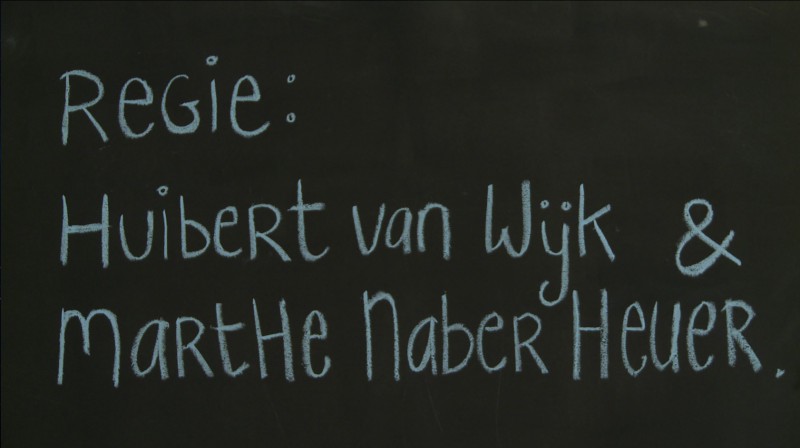 Regie:
Huibert van Wijk &
Marthe Naber Heuer.